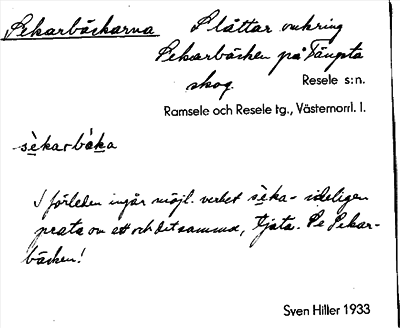 Sekarbäckarna
Slåttar omkring
Sekarbäcken på Tängsta
skog.
Resele s:n.
Ramsele och Resele tg., Västernorrl. l.
sèkarbäka
I förleden ingår möjl. verbet sèka- ideligen
prata om ett och det samma, tjata. Se Sekar-
bäcken!
Sven Hiller 1933